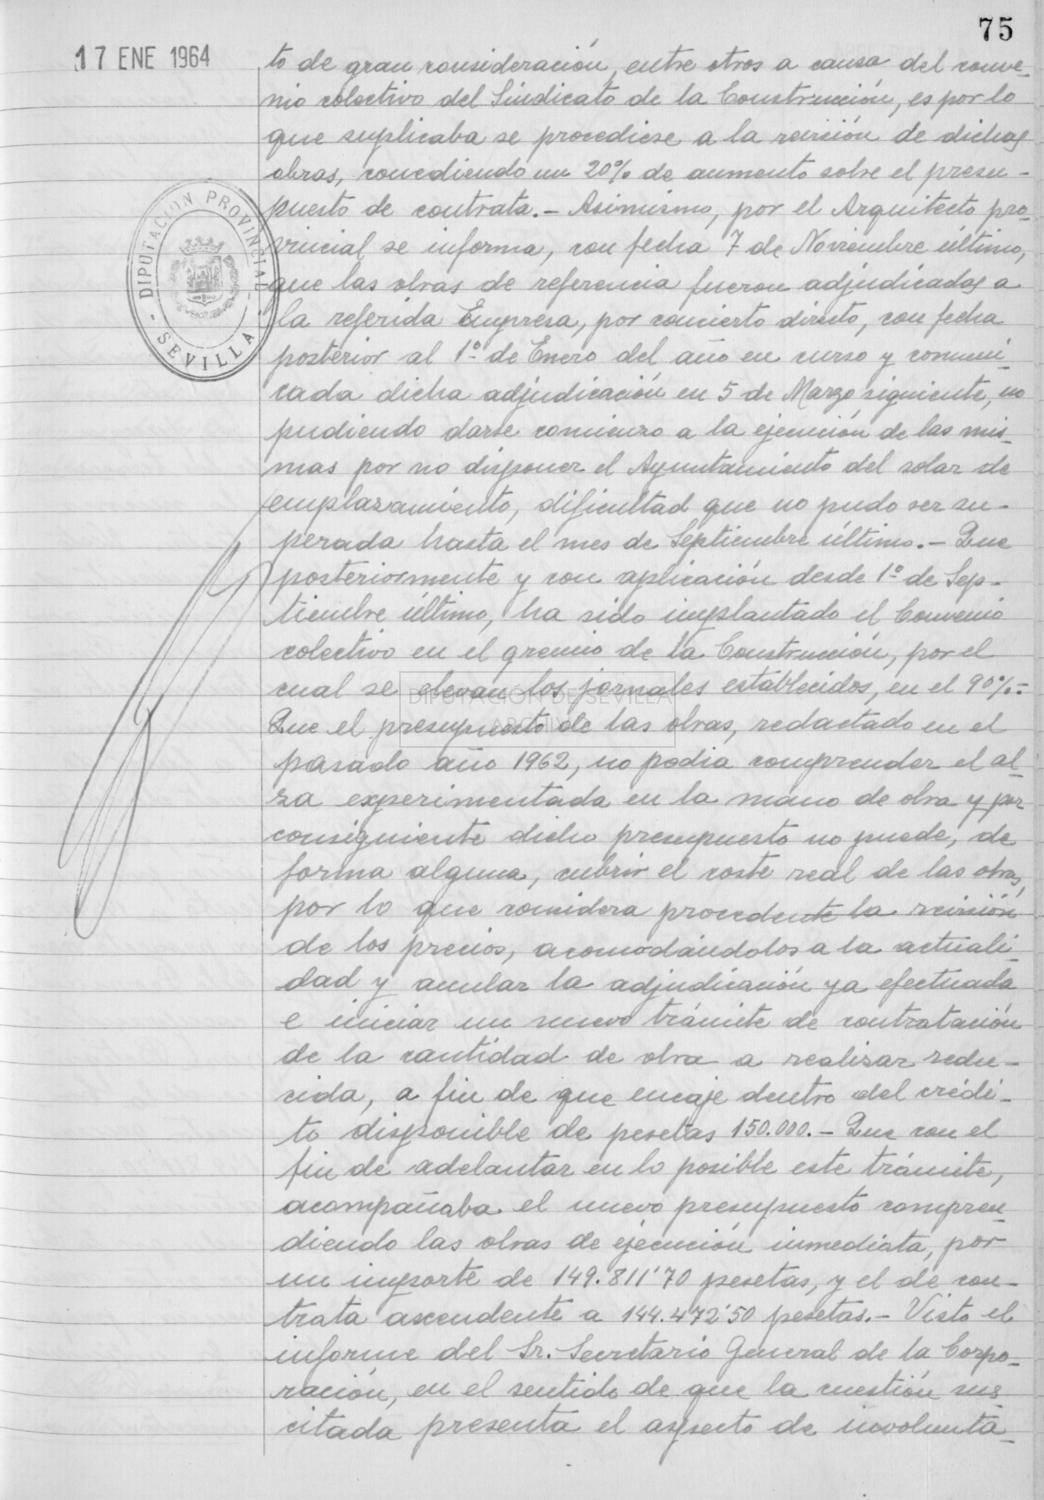 75
17 ENE 1964
to de gran consideración, entre otros a causa del conve-
nio colectivo del Sindicato de la Construcción, es por lo
que suplicaba se procediese a la revisión de dichas
obras, concediendo un 20% de aumento sobre el presu-
puesto de contrata.- Asimismo, por el Arquitecto pro-
vincial se informa, con fecha 7 de Noviembre último,
que las obras de referencia fueron adjudicadas a
la referida Empresa, por concierto directo, con fecha
posterior al 1º de Enero del año en curso y comuni-
cada dicha adjudicación en 5 de Marzo siguiente, no
pudiendo darse comienzo a la ejecución de las mis-
mas por no disponer el Ayuntamiento del solar de
emplazamiento, dificultad que no pudo ser su-
perada hasta el mes de Septiembre último.- Que
posteriormente y con aplicación desde 1º de Sep-
tiembre último, ha sido implantado el Convenio
colectivo en el gremio de la Construcción, por el
cual se elevan los jornales establecidos, en el 90%.-
Que el presupuesto de las obras, redactado en el
pasado año 1962, no podia comprender el al-
za experimentada en la mano de obra y por
consiguiente dicho presupuesto no puede, de
forma alguna, cubrir el coste real de las obras,
por lo que considera procedente la revisión
de los precios, acomodándolos a la actuali-
dad y anular la adjudicación ya efectuada
e iniciar un nuevo trámite de contratación
de la cantidad de obra a realizar redu-
cida, a fin de que encaje dentro del crédi-
to disponible de pesetas 150.000.- Que con el
fin de adelantar en lo posible este trámite,
acompañaba el nuevo presupuesto compren-
diendo las obras de ejecución inmediata, por
un importe de 149.811'70 pesetas, y el de con-
trata ascendente a 144.472'50 pesetas.- Visto el
informe del Sr. Secretario General de la Corpo-
ración, en el sentido de que la cuestión sus-
citada presenta el aspecto de involunta-
DIPUTACION PROVINCIAL - SEVILLA -
DIPUTACIÓN DE SEVILLA
ARCHIVO